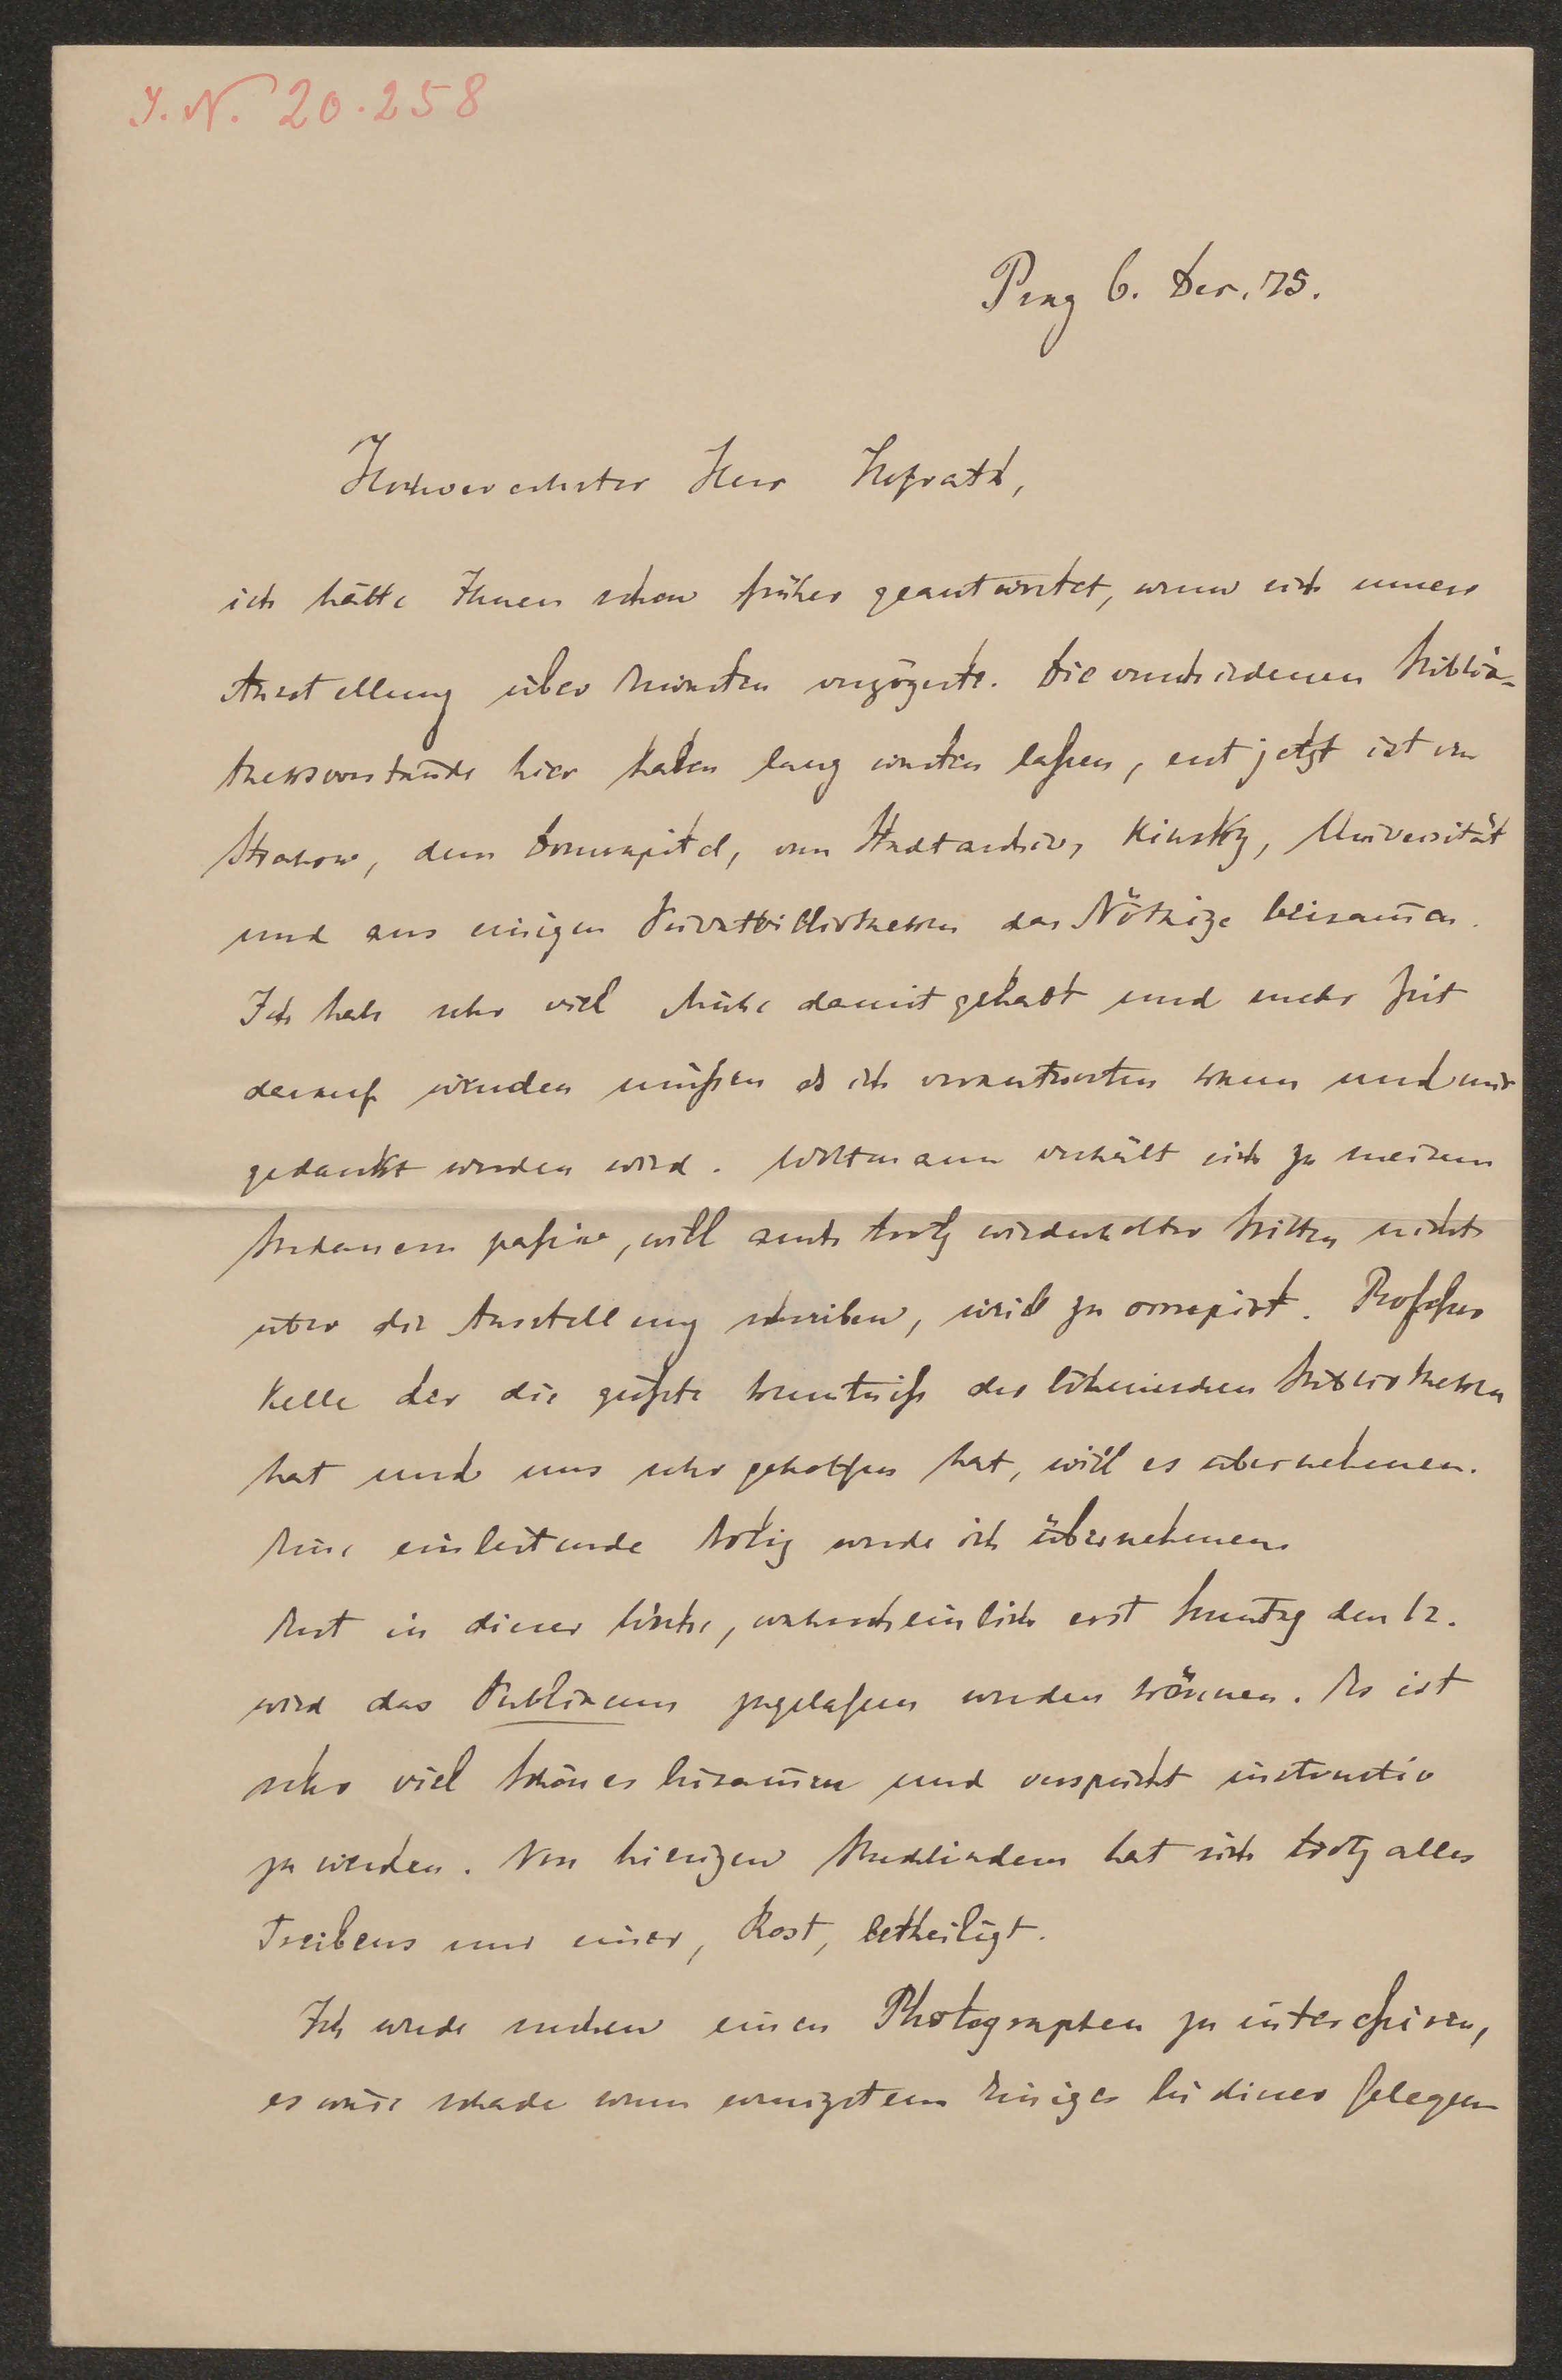 J. N. 20.258
Prag 6. Dec. 75.
Hochverehrter Herr Hofrath,
ich hätte Ihnen schon früher geantwortet, wenn sich unsere
Ausstellung über Miniaturen verzögerte. Die verschiedenen Biblio-
theksvorstände hier haben lang warten laßen, erst jetzt ist von
Strahow, dem Domcapitel, vom Stadtarchiv, Kinsky, Universität
und aus einigen Privatbibliotheken das Nöthige beisam̄en.
Ich habe sehr viel Mühe damit gehabt und mehr Zeit
darauf wenden müßen als ich verantworten kann und mir
gedankt werden wird. Woltmann verhält sich zu meinem
Bedauern paßiv, will auch trotz wiederholter Bitten nichts
über die Ausstellung schreiben, weil zu occupirt. Profeßor
Kelle der die größte Kenntniß der böhmischen Bibliotheken
hat und uns sehr geholfen hat, will es übernehmen.
Eine einleitende Notiz werde ich übernehmen.
Erst in dieser Woche, wahrscheinlich erst Sonntag den 12.
wird das Publicum zugelaßen werden können. Es ist
sehr viel Schönes beisam̄en und verspricht instructiv
zu werden. Von hiesigen Buchbindern hat sich trotz alles
Treibens nur einer, Rost, betheiligt.
Ich werde suchen einen Photographen zuintereßiren,
es wäre schade wenn wenigstens Einiges bei dieser Gelegen-